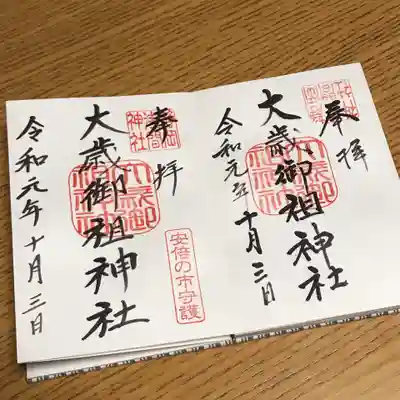 奉拝
大歳御祖神社
令和元年十月三日
奉拝
静岡浅間神社
大歳御祖神社
安倍の市守護
令和元年十月三日